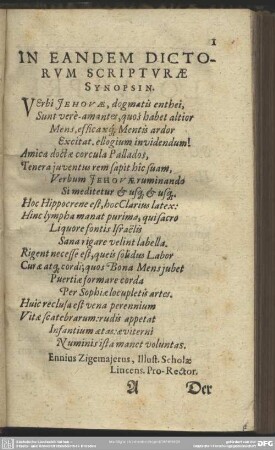 1
IN EANDEM DICTO-
RVM SCRIPTVRÆ
SYNOPSIN.
VErbi JEHOVÆ, dogmatis enthei,
Sunt verè-amantes, quos habet altior
Mens, efficaxq; Mentis ardor
Excitat. ellogium invidendum!
Amica doctæ corcula Pallados,
Tenera juventus rem sapit hic suam,
Verbum JEHOVÆ ruminando
Si meditetur & usq; & usq;.
Hoc Hippocrene est, hoc Clarius latex:
Hinc lympha manat purima, qui sacro
Liquore fontis Israëlis
Sana rigare velint labella.
Rigent necesse est, queis solidus Labor
Curæ atq; cordi; quos Bona Mens jubet
Puertiæ formare corda
Per Sophiæ locupletis artes.
Huic reclusa est vena perennium
Vitæ scatebrarum: rudis appetat
Infantium ætas: æviterni
Numinis ista manet voluntas.
Ennius Zigemajerus, Illust. Scholæ
Lincens. Pro-Rector.
A Der